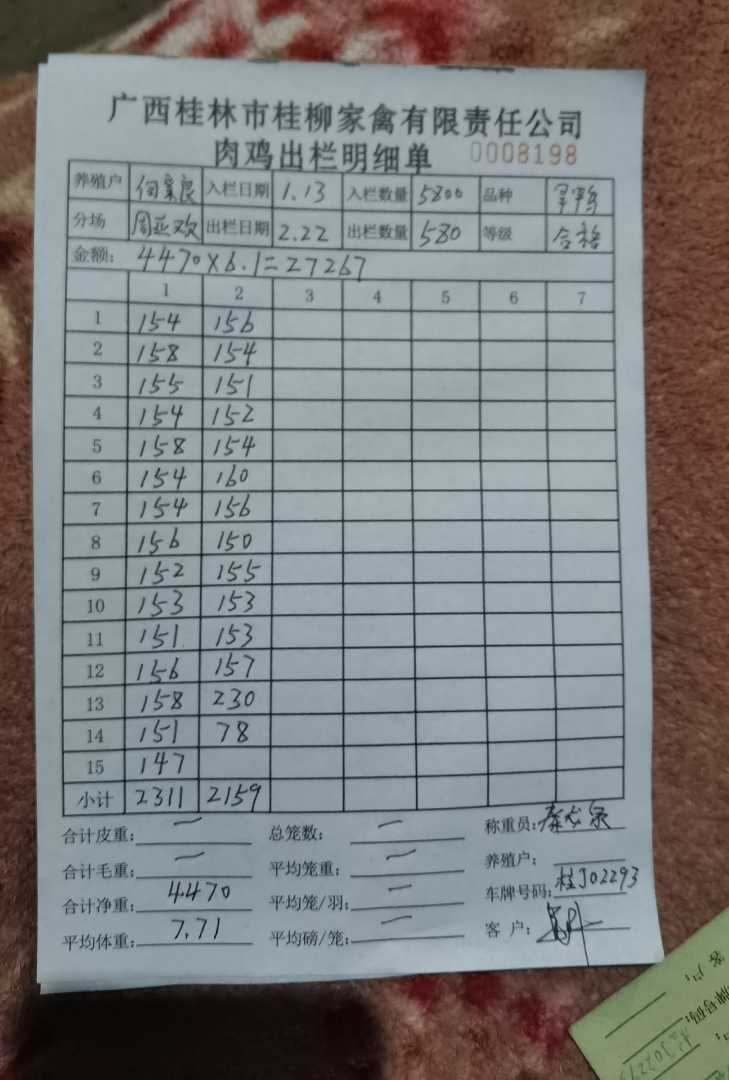 广西桂林市桂柳家禽有限责任公司
肉鸡出栏明细单 0008198
养殖户 入栏日期 1.13 入栏数量 5800 品种
分场 周亚欢 出栏日期 2.22 出栏数量 580 等级 合格
金额: 4470×6.1=27267
1 2 3 4 5 6 7
1 154 156
2 158 154
3 155 151
4 154 152
5 158 154
6 154 160
7 154 156
8 156 150
9 152 155
10 153 153
11 151 153
12 156 157
13 158 230
14 151 78
15 147
小计 2311 2159
合计皮重: — 总笼数: — 称重员:
合计毛重: — 平均笼重: — 养殖户:
合计净重: 4470 平均笼/羽: — 车牌号码: 桂J02293
平均体重: 7.71 平均磅/笼: — 客户:
客户:
牌号码: